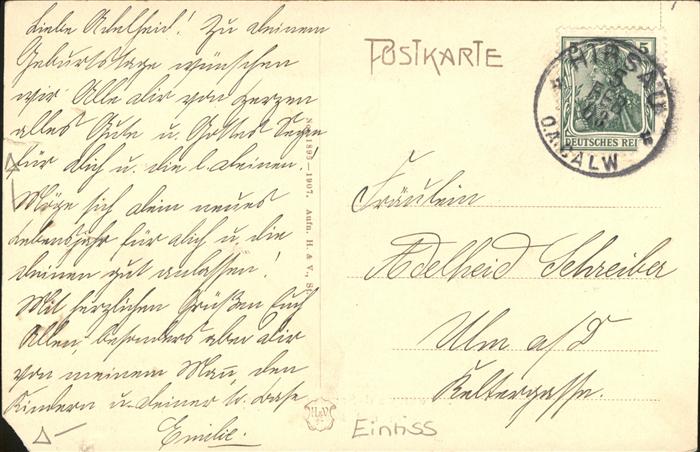 Liebe Adelheid! Zu Deinem
Geburtstage wünschen
wir Alle dir von Herzen
alles Gute u. Gottes Segen
für Dich u. die l. Deinen.
Möge sich dein neues
Lebensjahr für dich u. die
Deinen gut anlassen!
Mit herzlichen Grüßen Euch
Allen, besonders aber dir
von meinem Mañ, den
Kindern u. deiner tr. Base
Emilie.
1895–1907. Aufn. H. & V., S
H&V.
POSTKARTE
5
DEUTSCHES REI
HIRSAU
5 FEB 08
O.A. CALW
Fräulein
Adelheid Schreiber
Ulm a/D
Keltergasse.
Einriss